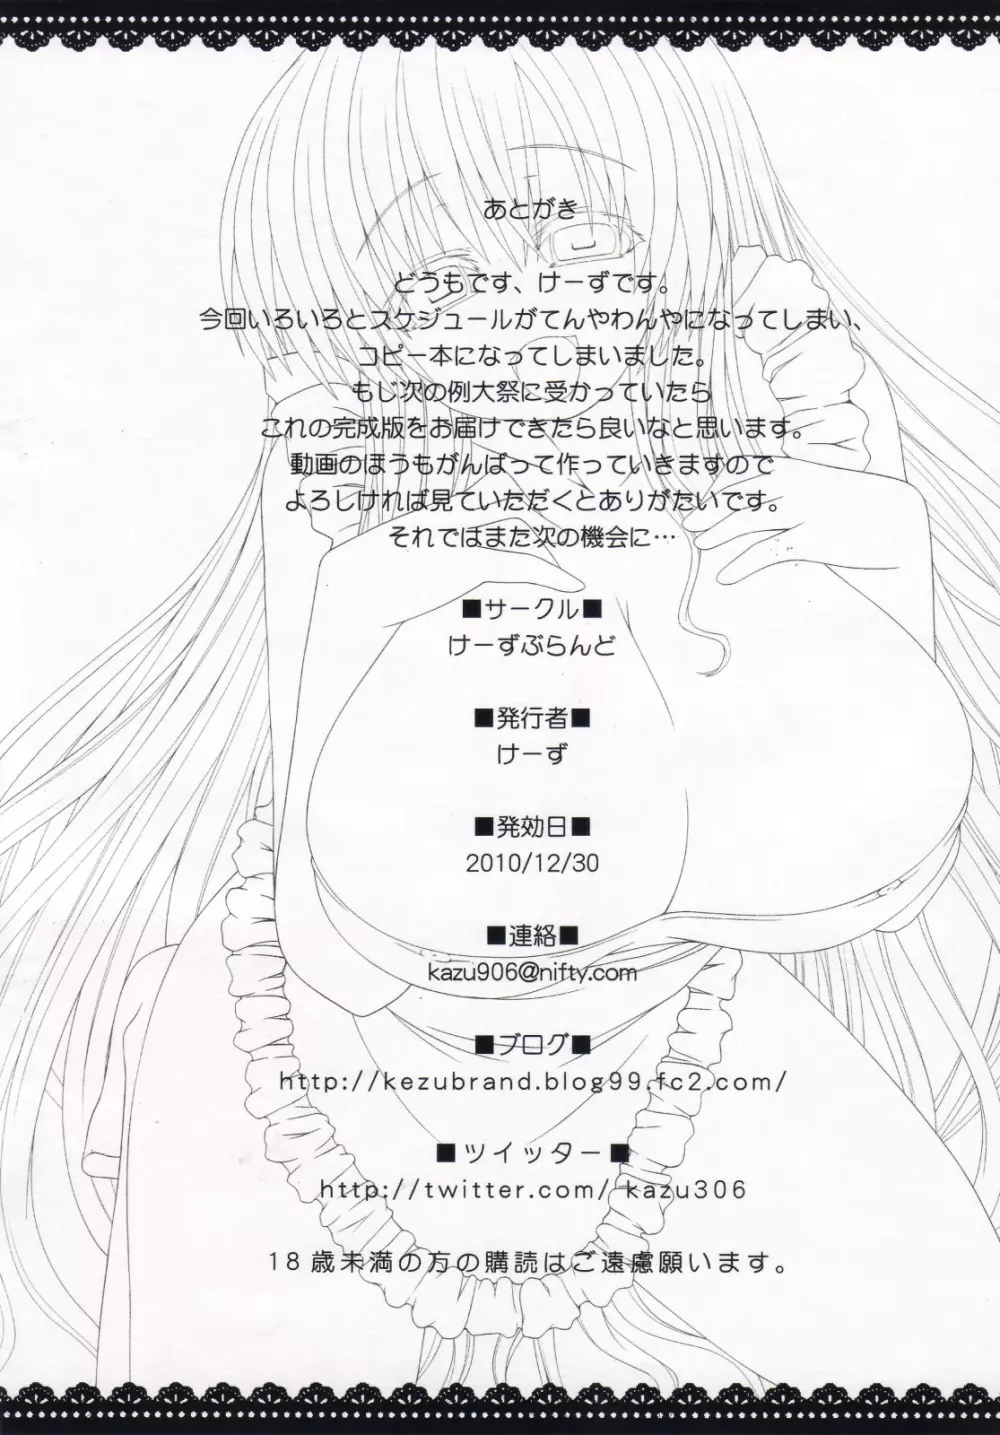 あとがき
どうもです、けーずです。
今回いろいろとスケジュールがてんやわんやになってしまい、
コピー本になってしまいました。
もし次の例大祭に受かっていたら
これの完成版をお届けできたら良いなと思います。
動画のほうもがんばって作っていきますので
よろしければ見ていただくとありがたいです。
それではまた次の機会に…
■サークル■
けーずぶらんど
■発行者■
けーず
■発効日■
2010/12/30
■連絡■
kazu906@nifty.com
■ブログ■
http://kezubrand.blog99.fc2.com/
■ツイッター■
http://twitter.com/ kazu306
18歳未満の方の購読はご遠慮願います。